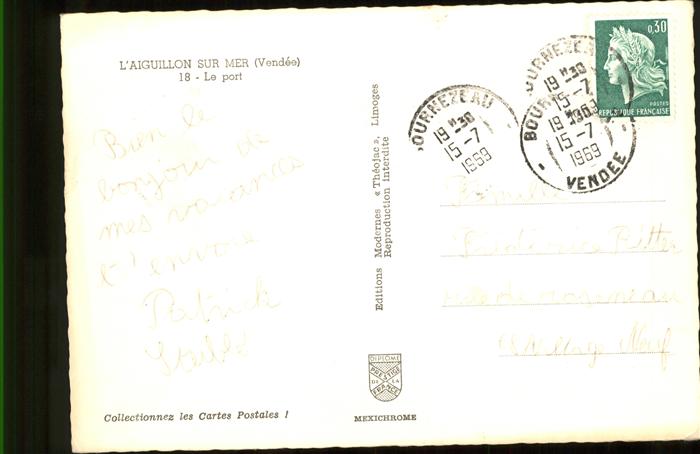 L'AIGUILLON SUR MER (Vendée)
18 - Le port
Bien le
bonjour de
mes vacances
t'envoie
Patrick
Collectionnez les Cartes Postales !
Editions Modernes « Théojac », Limoges
Reproduction interdite
DIPLOME
PRESTIGE
DE LA
FRANCE
MEXICHROME
BOURNEZEAU
19 H 30
15-7
1969
BOURNEZEAU
19 H 30
15-7
1969
VENDEE
0,30
POSTES
REPUBLIQUE FRANÇAISE
Famille
Frédérice Ritter